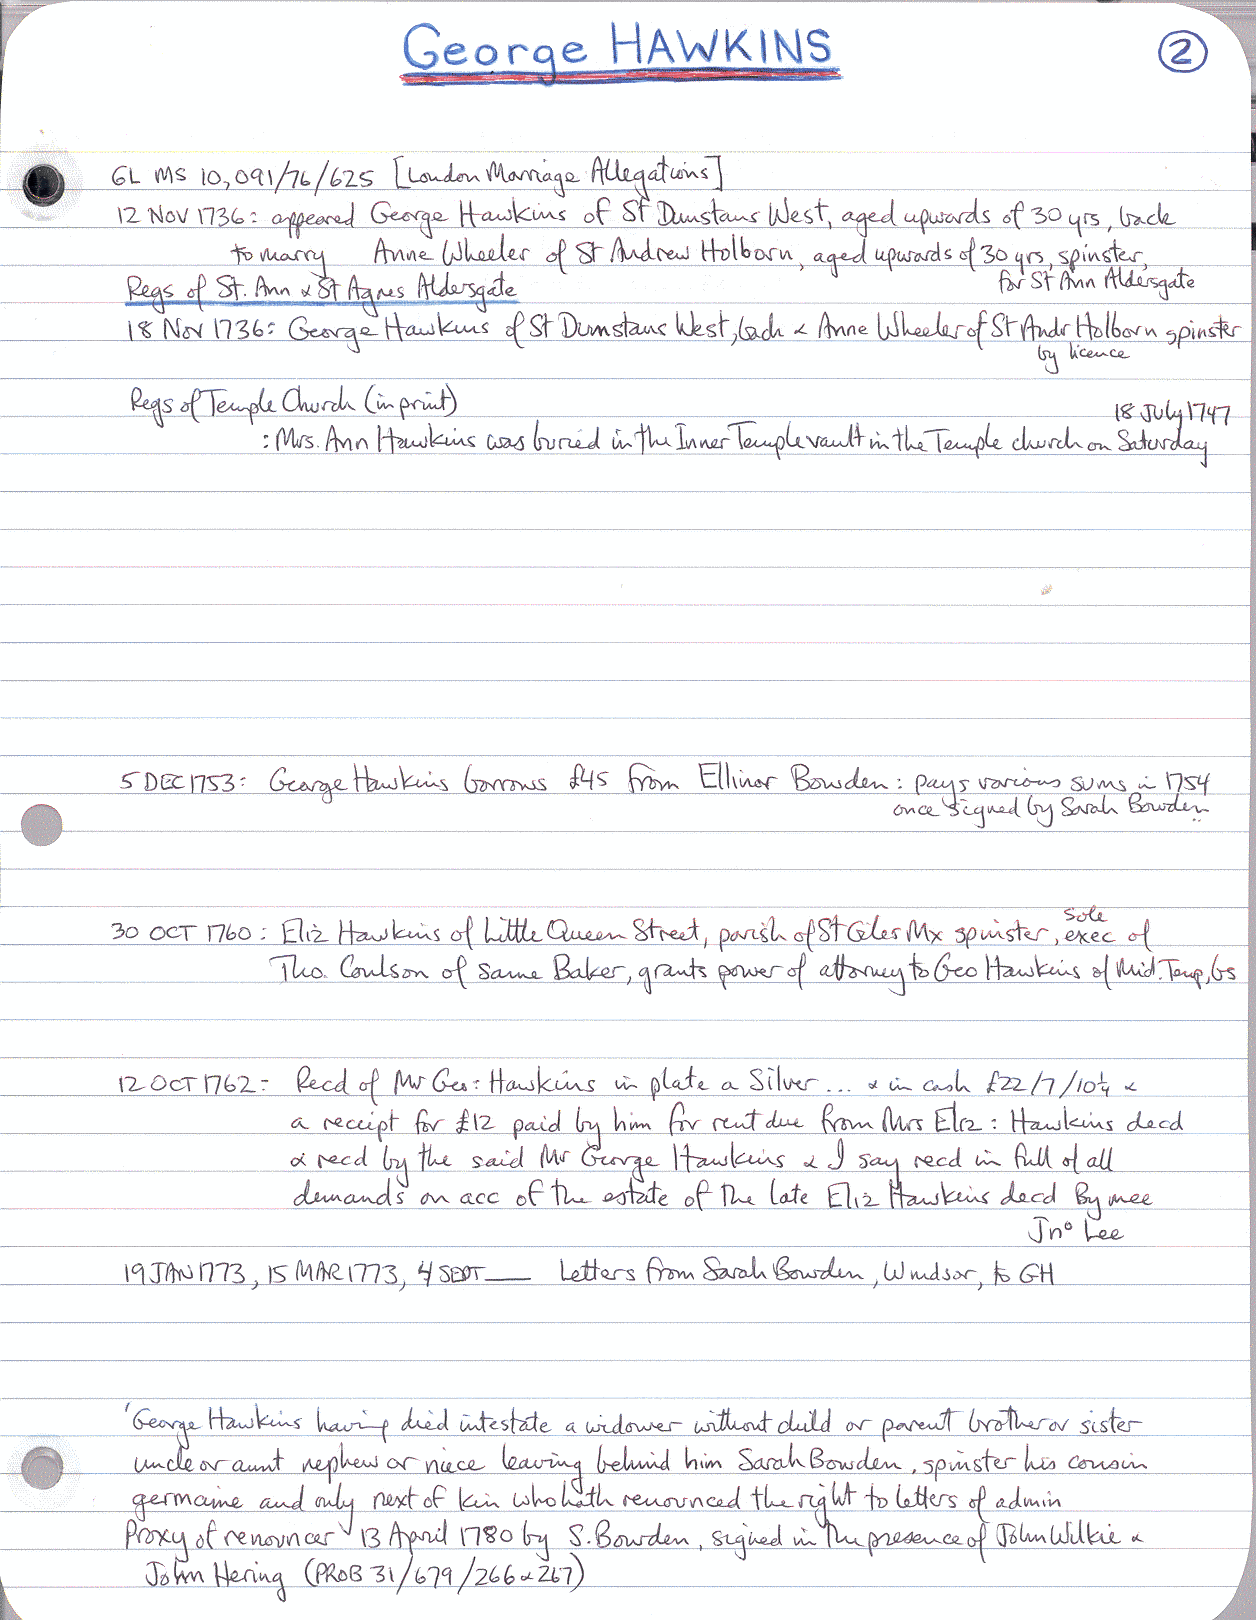 George HAWKINS
2
GL MS 10,091/76/625 [London Marriage Allegations]
12 Nov 1736: appeared George Hawkins of St Dunstans West, aged upwards of 30 yrs, bach
to marry Anne Wheeler of St Andrew Holborn, aged upwards of 30 yrs, spinster,
for St Ann Aldersgate
Regs of St. Ann & St Agnes Aldersgate
18 Nov 1736: George Hawkins of St Dunstans West, bach & Anne Wheeler of St Andr Holborn spinster
by licence
Regs of Temple Church (in print)
18 July 1747
: Mrs. Ann Hawkins was buried in the Inner Temple vault in the Temple church on Saturday
5 DEC 1753: George Hawkins borrows £45 from Ellinor Bowden: pays various sums in 1754
once signed by Sarah Bowden
30 OCT 1760: Eliz Hawkins of Little Queen Street, parish of St Giles Mx spinster, sole exec of
Tho. Coulson of same Baker, grants power of attorney to Geo Hawkins of Mid. Temp, Gs
12 OCT 1762= Recd of Mr Geo: Hawkins in plate a Silver... & in cash £22/7/10¼ &
a receipt for £12 paid by him for rent due from Mrs Eliz: Hawkins decd
& recd by the said Mr George Hawkins & I say recd in full of all
demands on acc of the estate of the late Eliz Hawkins decd By mee
Jnº Lee
19 JAN 1773, 15 MAR 1773, 4 SEPT — Letters from Sarah Bowden, Windsor, to GH
'George Hawkins having died intestate a widower without child or parent brother or sister
uncle or aunt nephew or niece leaving behind him Sarah Bowden, spinster his cousin
germaine and only next of kin who hath renounced the right to letters of admin
Proxy of renouncer 13 April 1780 by S. Bowden, signed in the presence of John Wilkie &
John Hering (PROB 31/679/266 & 267)